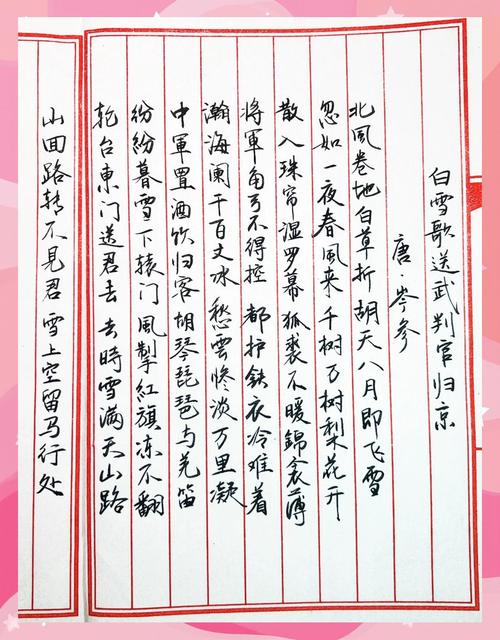 白雪歌送武判官归京
唐·岑参
北風卷地白草折 胡天八月即飞雪
忽如一夜春風来 千树万树梨花开
散入珠帘湿罗幕 狐裘不暖錦衾薄
将軍角弓不得控 都护铁衣冷难着
瀚海阑干百丈冰 愁雲惨淡万里凝
中軍置酒饮归客 胡琴琵琶与羌笛
紛紛暮雪下辕门 風掣紅旗冻不翻
轮台東门送君去 去時雪满天山路
山回路转不見君 雪上空留马行处